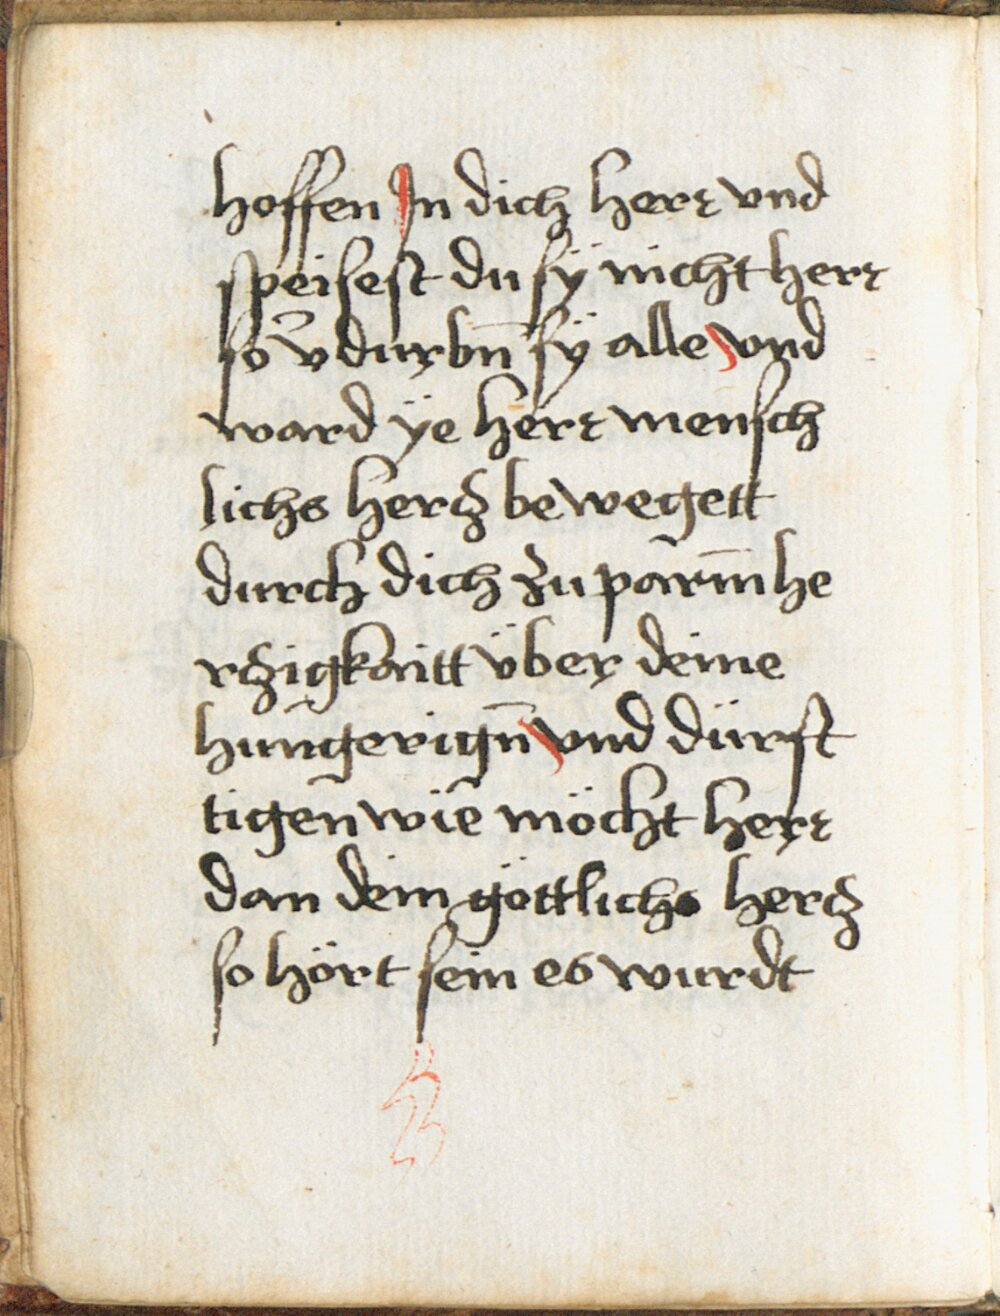 hoffen Jn dich herr vnd
speisest du sÿ nicht herr
so v̄durbn̄ sÿ alle vnd
ward ÿe herr mensch
lichs hercz bewegett
durch dich zu parm̄he
rczigkaitt v̈ber deine
hungerign̄ vnd dürfft
tigen wie möcht herr
dan dein göttlichs hercz
so hört sein es wurdt